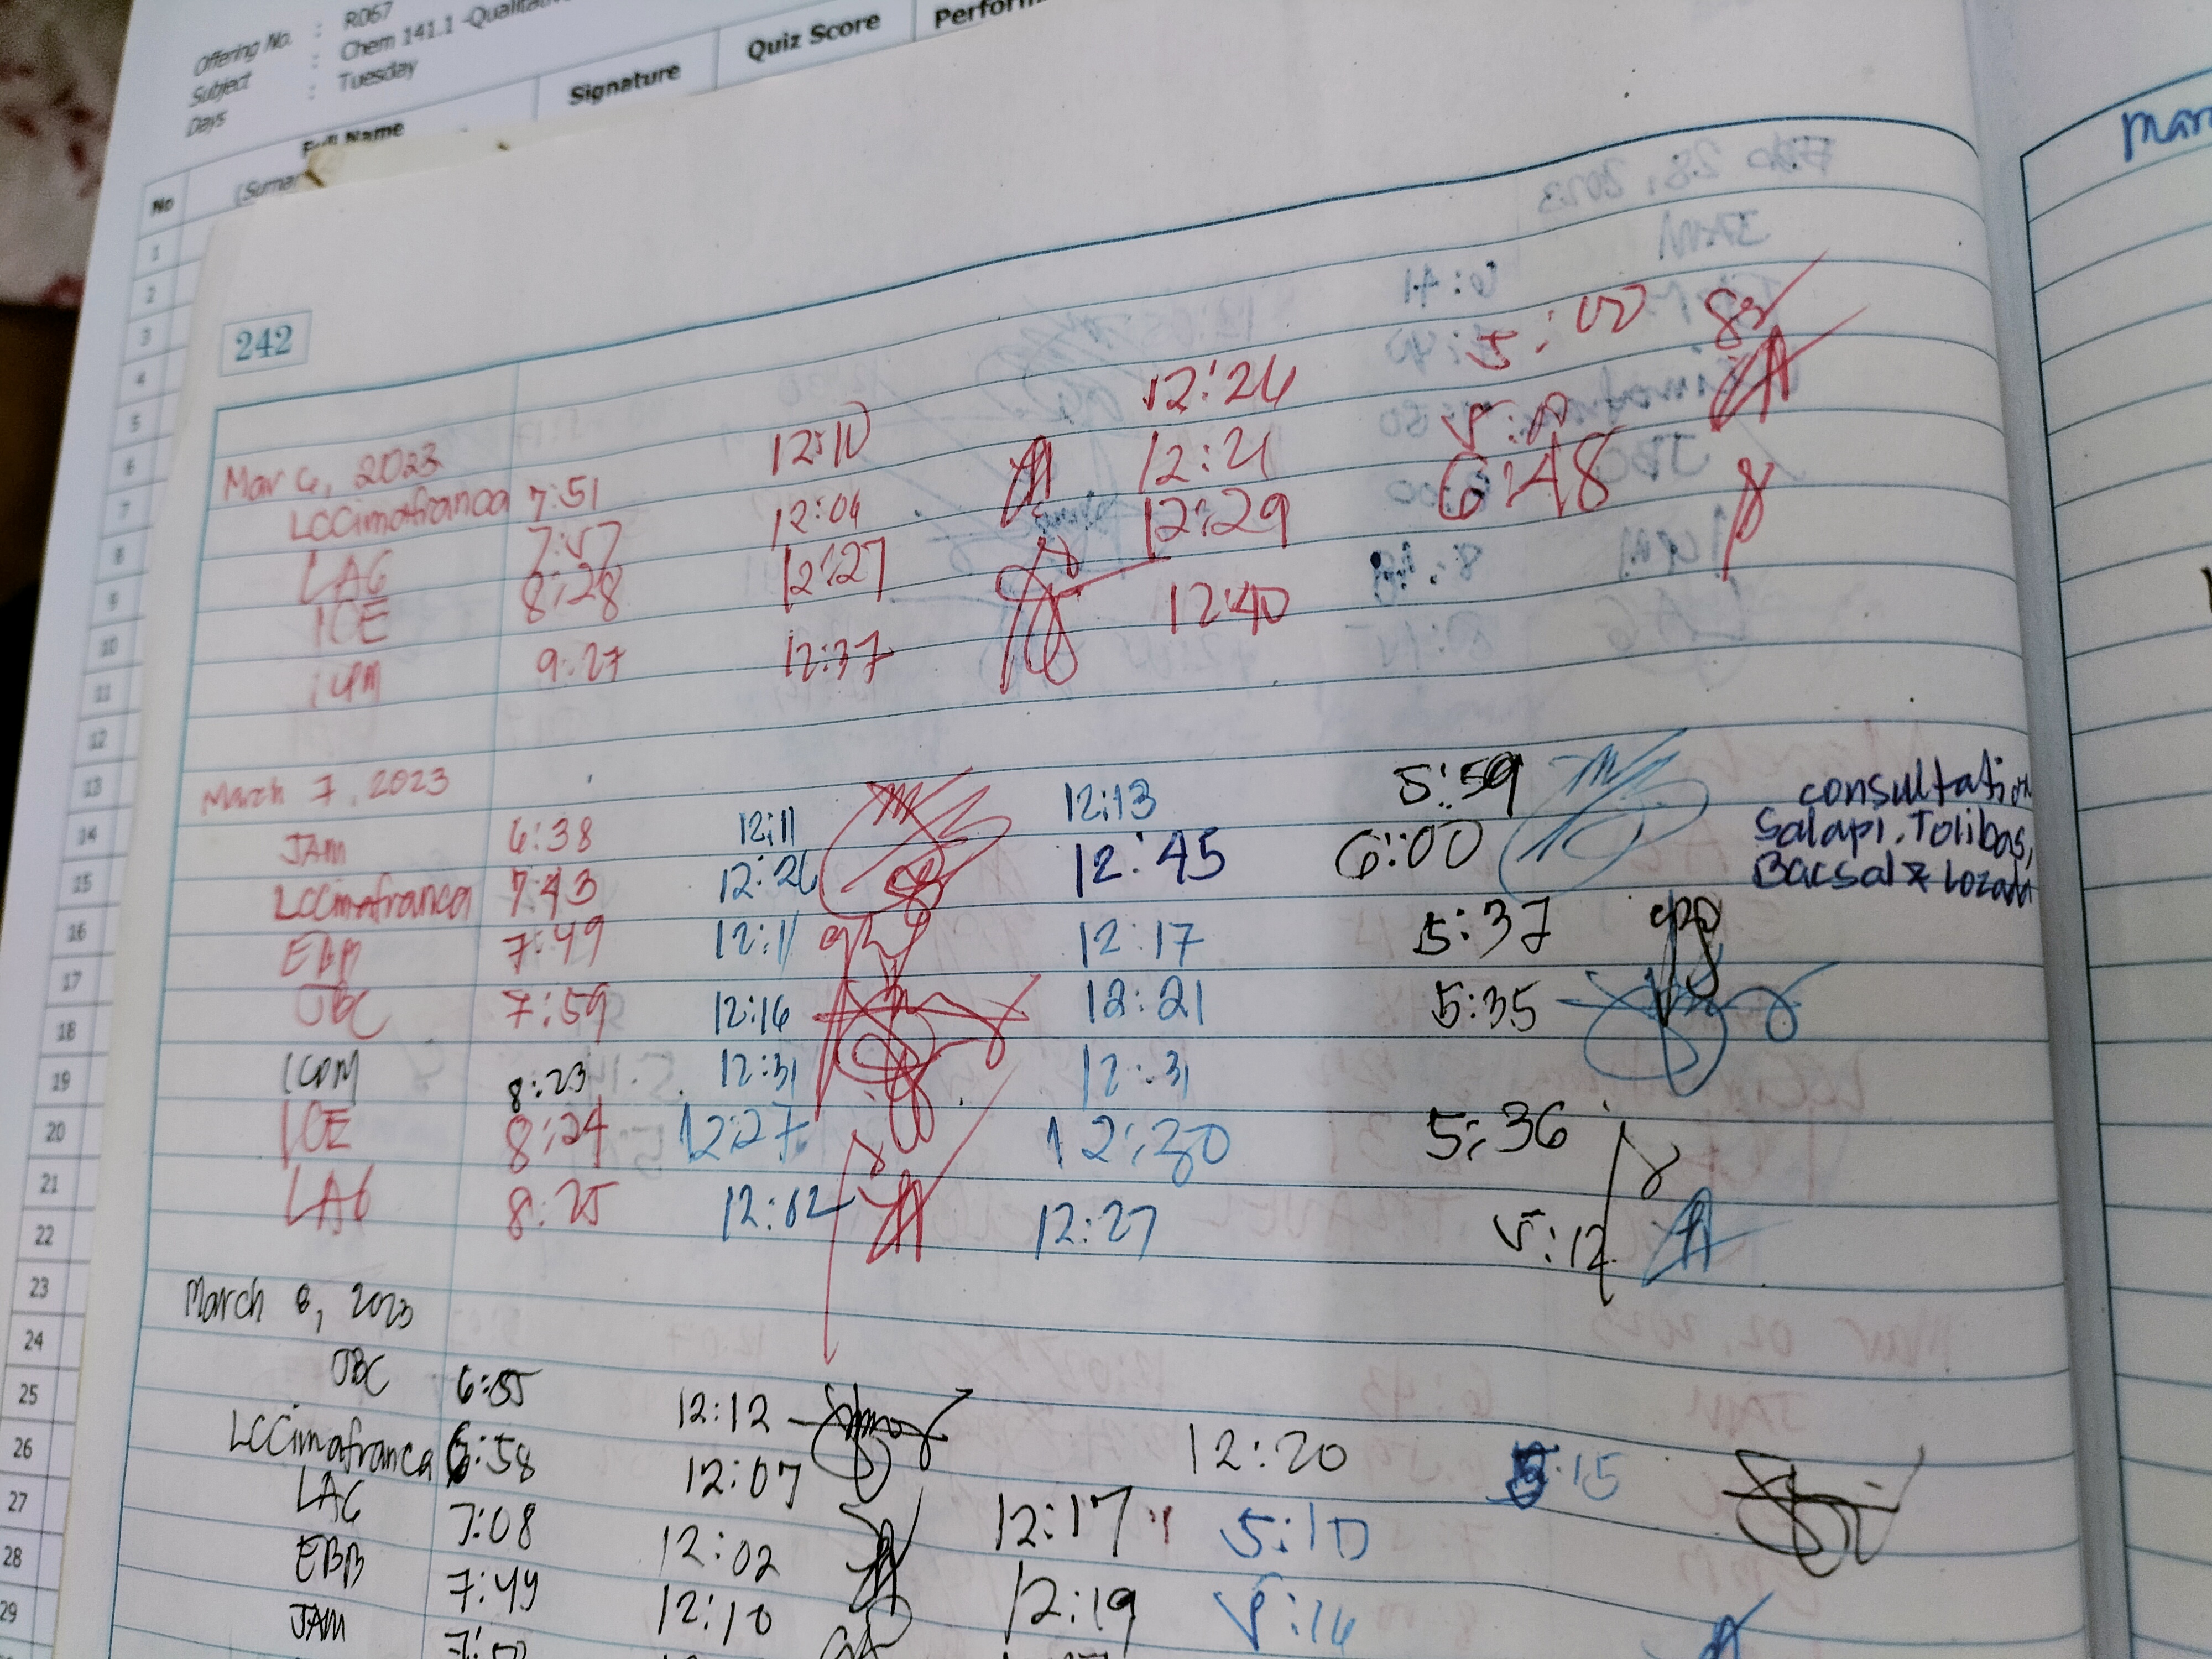 Offering No. : R067
Subject : Chem 141.1 -Qualitative
Days : Tuesday
No Full Name Signature Quiz Score
(Surna
1
2
3
4
5
6
7
8
9
10
11
12
13
14
15
16
17
18
19
20
21
22
23
24
25
26
27
28
29
242
Mar 6, 2023
LCCimafranca 7:51 12:10 12:26 5:00
LAG 7:57 12:04 12:21
ICE 8:28 12:27 12:29 6:48
9:27 12:37 12:40
March 7, 2023
JAM 6:38 12:11 12:13 5:59
LCCimafranca 7:43 12:26 12:45 6:00
consultation
Salapi, Tolibas,
EBB 7:49 12:11 12:17 5:37
JBC 7:59 12:16 12:21 5:35
8:23 12:31 12:31
ICE 8:24 12:27 12:30 5:36
LAG 8:25 12:02 12:27 5:12
March 8, 2023
JBC 6:55 12:12 12:20 5:15
LCCimafranca 6:58 12:07 12:17 5:10
LAG 7:08 12:02 12:19 5:16
EBB 7:49 12:10
JAM